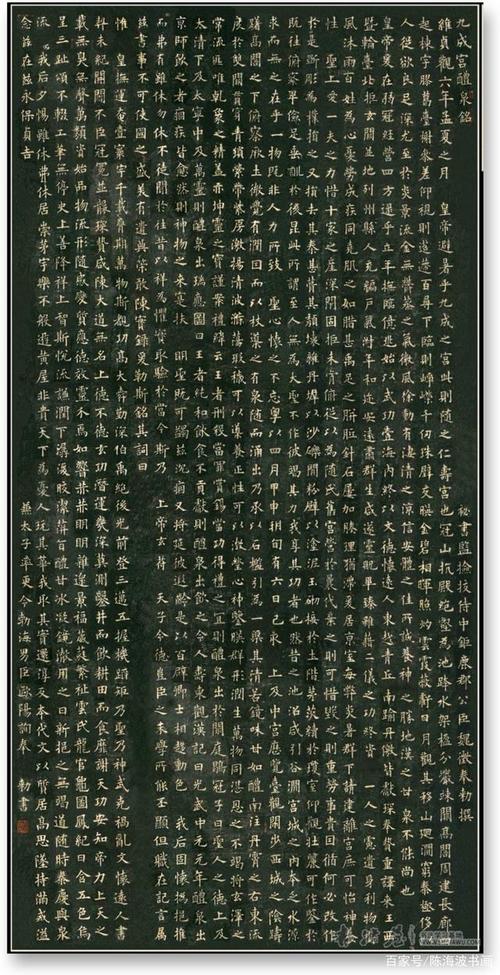 九成宮醴泉銘 秘書監檢校侍中鉅鹿郡公臣魏徵奉勅撰
維貞觀六年孟夏之月 皇帝避暑乎九成之宮此則隨之仁壽宮也冠山抗殿絕壑為池跨水架楹分巖竦闕高閣周建長廊四
起棟宇膠葛臺榭參差仰視則迢遰百尋下臨則崢嶸千仞珠璧交映金碧相暉照灼雲霞蔽虧日月觀其移山迴澗窮泰極侈以
人從欲良足深尤至於炎景流金無鬱蒸之氣微風徐動有淒清之涼信安體之佳所誠養神之勝地漢之甘泉不能尚也
皇帝爰在弱冠經營四方逮乎立年撫臨億兆始以武功壹海內終以文德懷遠人東越青丘南踰丹徼皆獻琛奉贄重譯來王西
暨輪臺北拒玄闕並地列州縣人充編戶氣淑年和邇安遠肅群生咸遂靈貺畢臻雖藉二儀之功終資 一人之慮遺身利物櫛
風沐雨百姓為心憂勞成疾同堯肌之如腊甚禹足之胼胝針石屢加腠理猶滯爰居京室每弊炎暑群下請建離宮庶可怡神養
性 聖上愛一夫之力惜十家之產深閉固拒未肯俯從以為隨氏舊宮營於曩代棄之則可惜毀之則重勞事貴因循何必改作
於是斲彫為樸損之又損去其泰甚葺其頹壞雜丹墀以沙礫間粉壁以塗泥玉砌接於土階茅茨續於瓊室仰觀壯麗可作鑒於
既往俯察卑儉足垂訓於後昆此所謂至人無為大聖不作彼竭其力我享其功者也然昔之池沼咸引谷澗宮城之內本乏水源
求而無之在乎一物既非人力所致 聖心懷之不忘粵以四月甲申朔旬有六日己亥 上及中宮歷覽臺觀閑步西城之陰躊
躇高閣之下俯察厥土微覺有潤因而以杖導之有泉隨而涌出乃承以石檻引為一渠其清若鏡味甘如醴南注丹霄之右東流
度於雙闕貫穿青瑣縈帶紫房激揚清波滌蕩瑕穢可以導養正性可以澂瑩心神鑒映群形潤生萬物同湛恩之不竭將玄澤之
常流匪唯乾象之精蓋亦坤靈之寶謹案禮緯云王者刑殺當罪賞錫當功得禮之宜則醴泉出於闕庭鶡冠子曰聖人之德上及
太清下及太寧中及萬靈則醴泉出瑞應圖曰王者純和飲食不貢獻則醴泉出飲之令人壽東觀漢記曰光武中元元年醴泉出
京師飲之者痼疾皆愈然則神物之來寔扶 明聖既可蠲茲沉痼又將延彼遐齡是以百辟卿士相趨動色 我后固懷撝挹推
而弗有雖休勿休不徒聞於往昔以祥為懼實取驗於當今斯乃 上帝玄符 天子令德豈臣之末學所能丕顯但職在記言屬
茲書事不可使國之盛美有遺典策敢陳實錄爰勒斯銘其詞曰
惟 皇撫運奄壹寰宇千載膺期萬物斯覩功高大舜勤深伯禹絕後光前登三邁五握機蹈矩乃聖乃神武克禍亂文懷遠人書
契未紀開闢不臣冠冕並襲琛贄咸陳大道無名上德不德玄功潛運幾深莫測鑿井而飲耕田而食靡謝天功安知帝力上天之
載無臭無聲萬類資始品物流形隨感變質應德效靈介焉如響赫赫明明雜遝景福葳蕤繁祉雲氏龍官龜圖鳳紀日含五色烏
呈三趾頌不輟工筆無停史上善降祥上智斯悅流謙潤下潺湲皎潔蓱旨醴甘冰凝鏡澈用之日新挹之無竭道隨時泰慶與泉
流 我后夕惕雖休弗休居崇茅宇樂不般遊黃屋非貴天下為憂人玩其華我取其實還淳反本代文以質居高思墜持滿戒溢
念茲在茲永保貞吉 兼太子率更令勃海男臣歐陽詢奉 勅書
百家号/陈海波书画